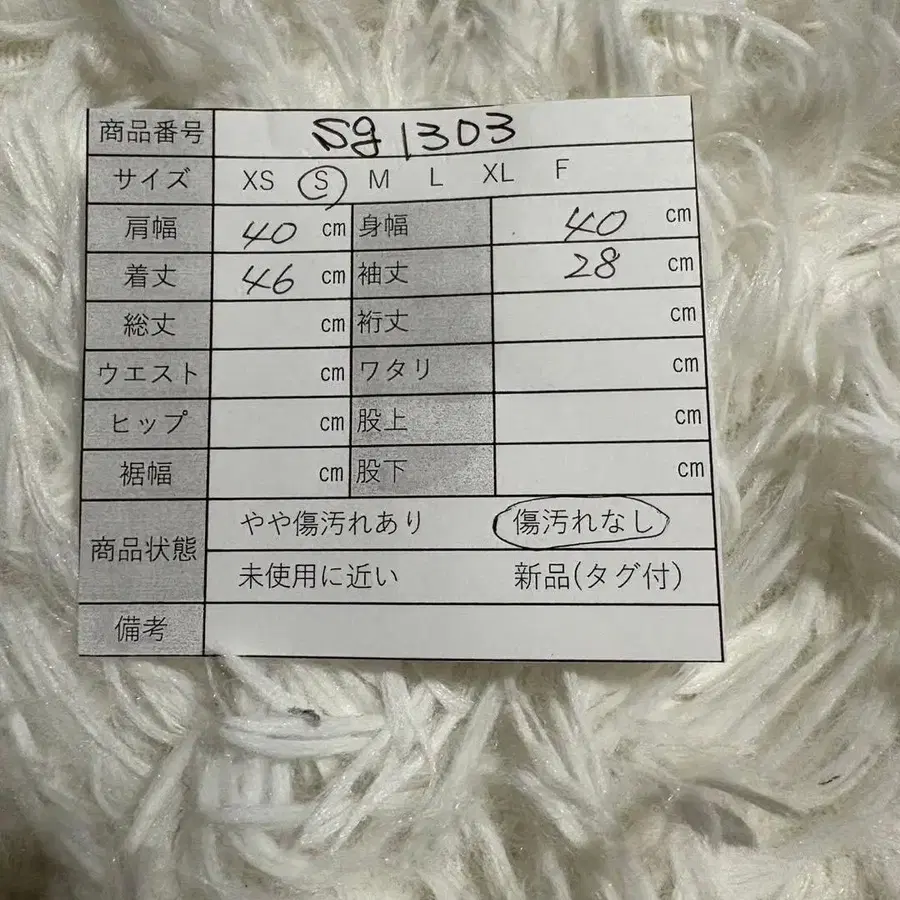 商品番号 sg1303
サイズ XS S M L XL F
肩幅 40 cm 身幅 40 cm
着丈 46 cm 袖丈 28 cm
総丈 cm 裄丈 cm
ウエスト cm ワタリ cm
ヒップ cm 股上 cm
裾幅 cm 股下 cm
商品状態 やや傷汚れあり 傷汚れなし
未使用に近い 新品(タグ付)
備考